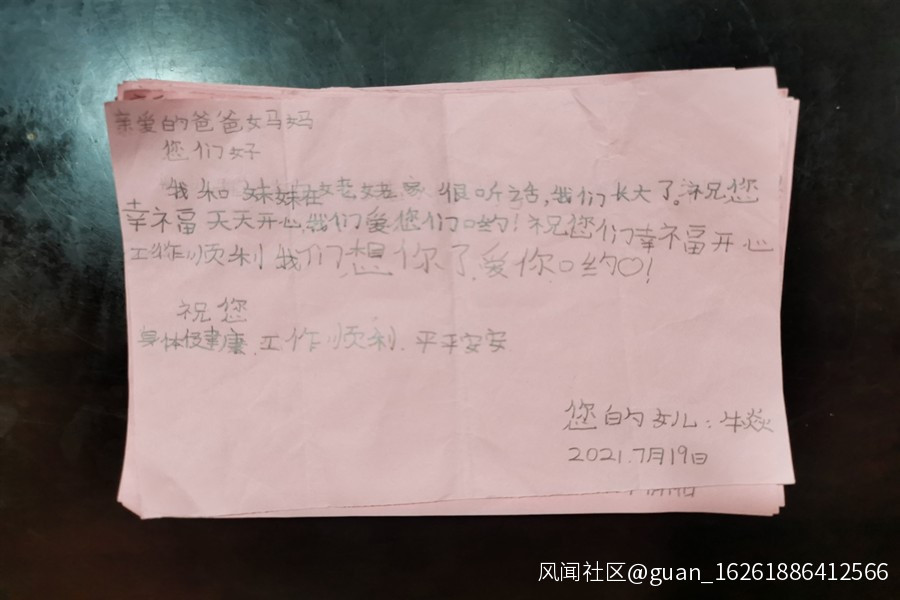 亲爱的爸爸妈妈
您们好
我和妹妹在姥姥家很听话,我们长大了。祝您
幸福天天开心,我们爱您们哟!祝您们幸福开心
工作顺利我们想你了,爱你哟!
祝您
身体健康.工作顺利.平平安安
您的女儿:牛焱
2021.7月19日
月19日
风闻社区@guan_16261886412566